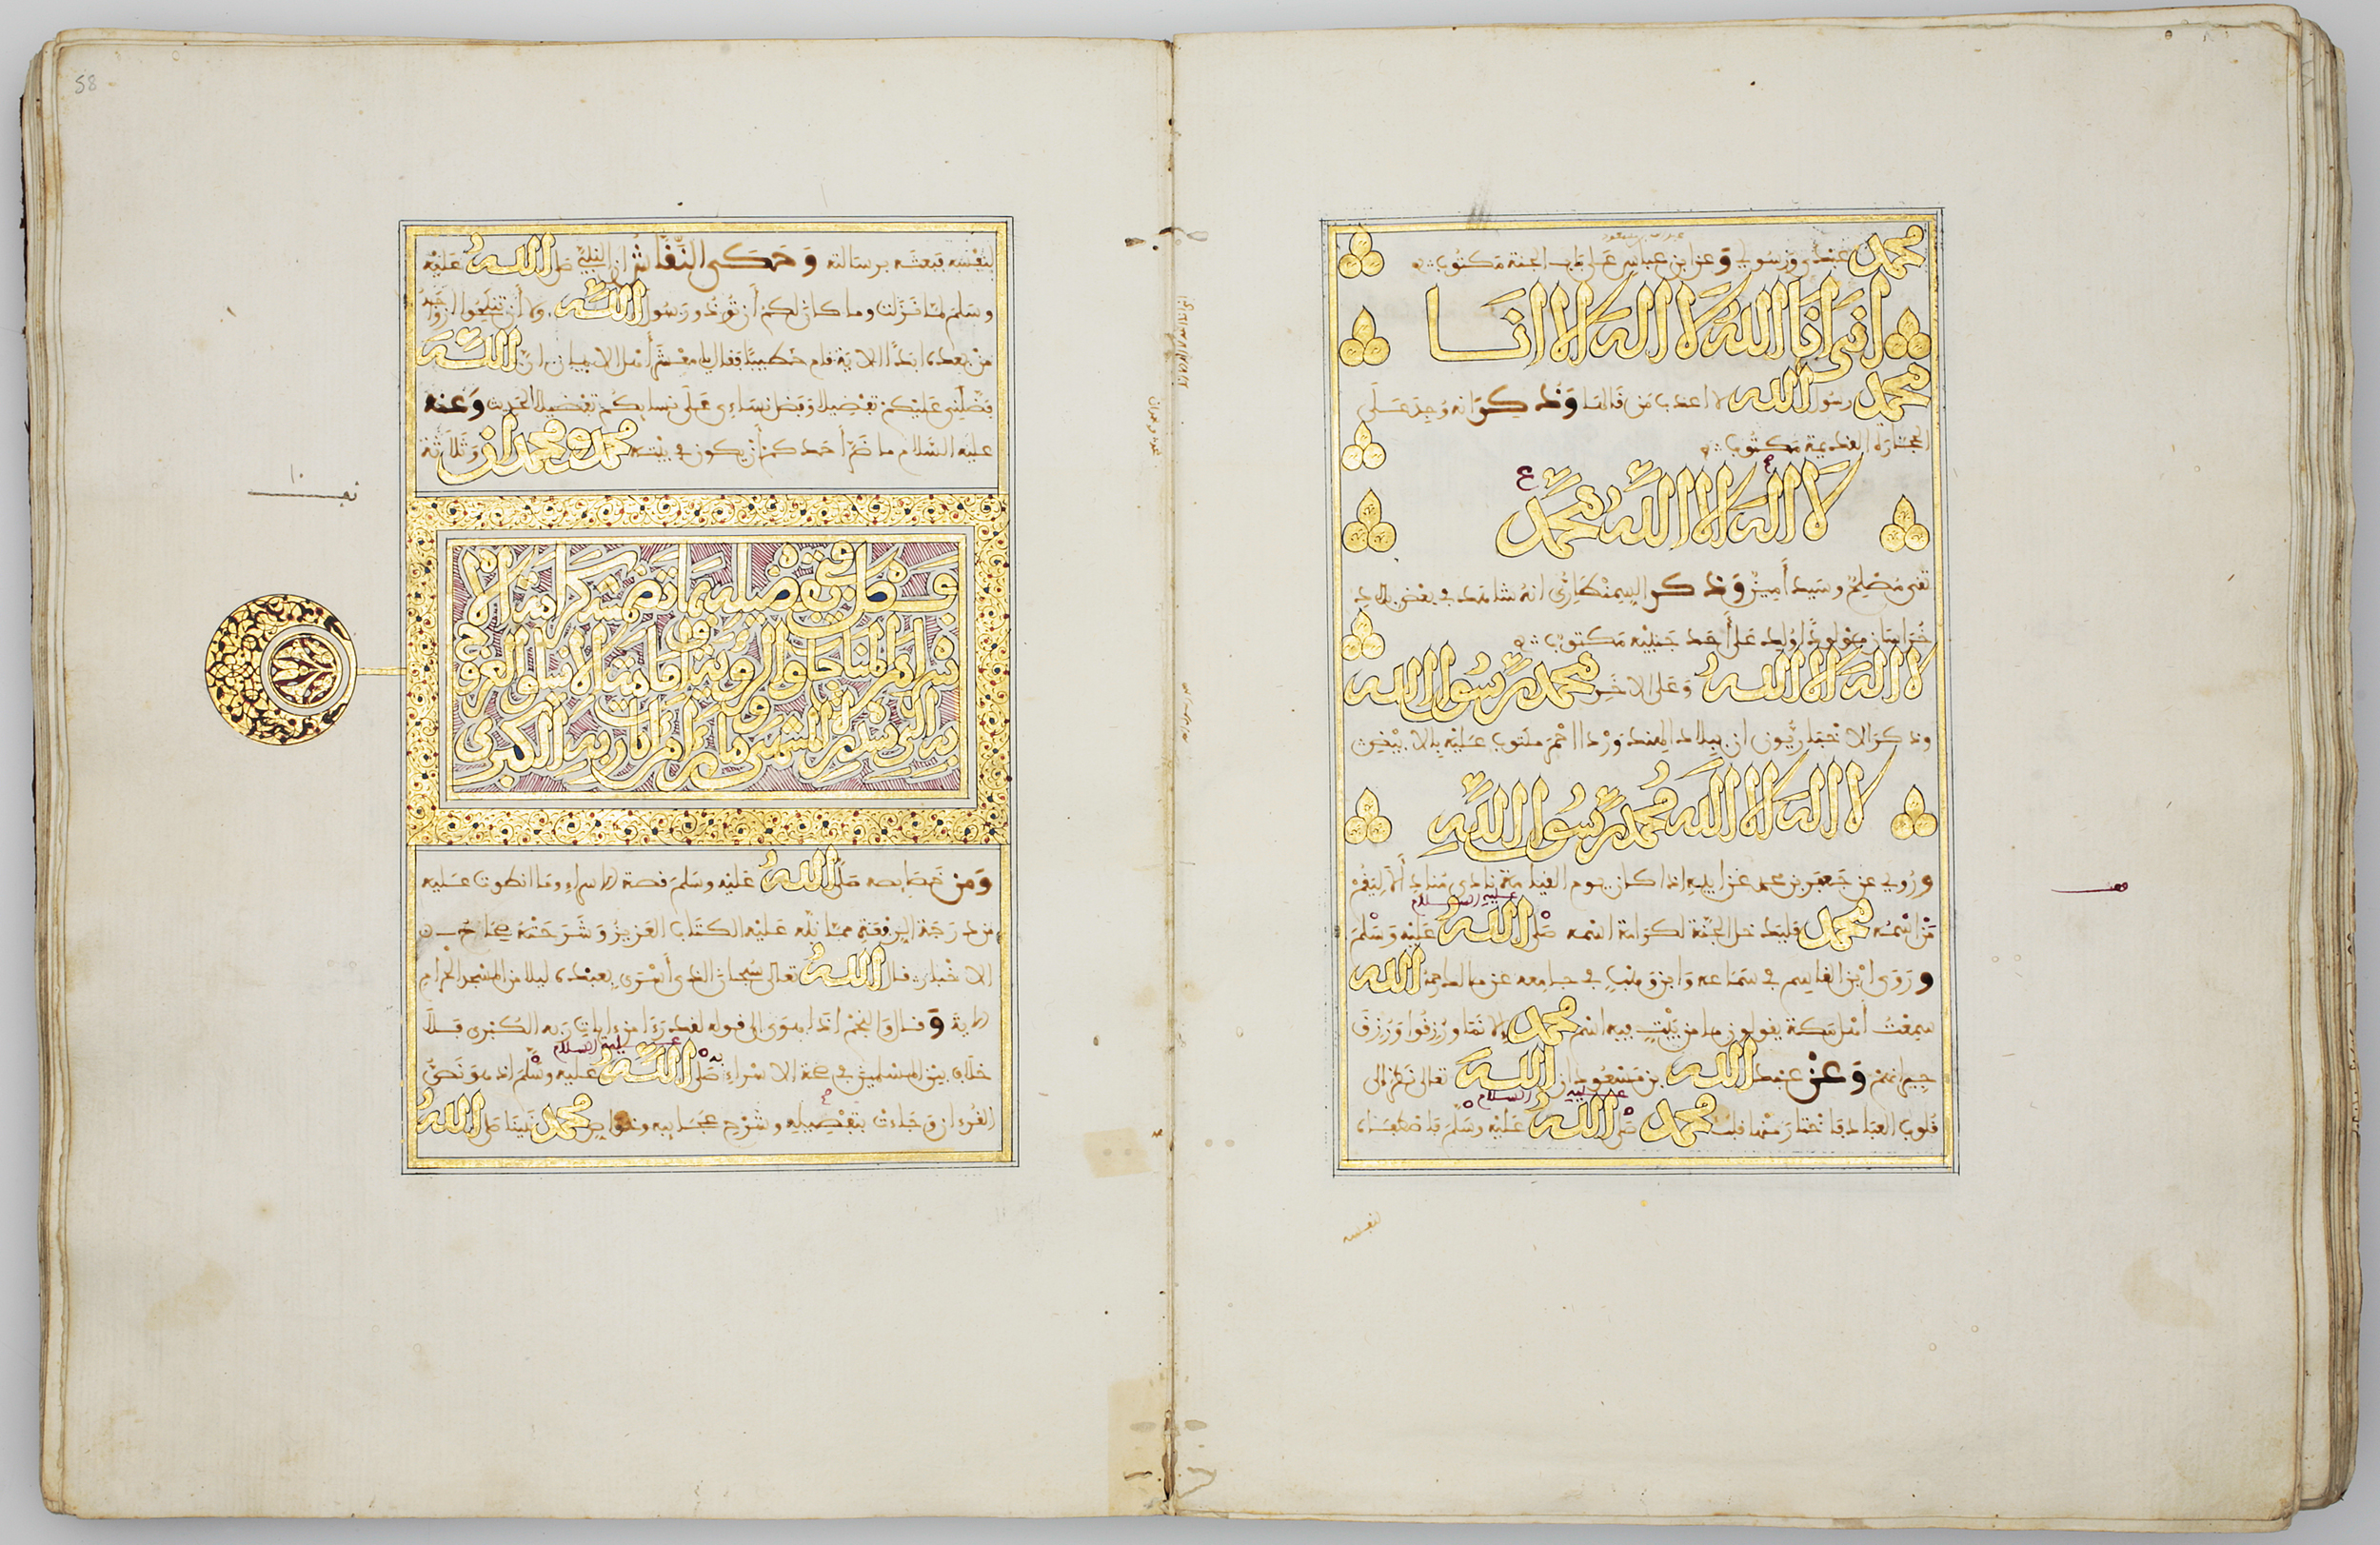 محمد عبدي ورسولي وعن ابن عباس على باب الجنة مكتوب
انني انا الله لا اله الا انا
محمد رسول الله لا اعذب من قالها وذكر انه وجد على
الحجارة القديمة مكتوب
لا اله الا الله محمد
تقي مصلح وسيد أمين وذكر السمنطاري انه شاهد في بعض بلاد
خراسان مولودا ولد على أحد جنبيه مكتوب
لا اله الا الله وعلى الاخر محمد رسول الله
وذكر الاخباريون ان ببلاد الهند وردا احمر مكتوب عليه بالابيض
لا اله الا الله محمد رسول الله
وروي عن جعفر بن محمد عن ابيه اذا كان يوم القيامة نادى مناد ألا ليقم
من اسمه محمد فليدخل الجنة لكرامة اسمه صلى الله عليه وسلم
عليه السلام
وروى ابن القاسم في سماعه وابن وهب في جامعه عن مالك رحمه الله
سمعت أهل مكة يقولون ما من بيت فيه اسم محمد إلا نما ورزقوا ورزق
جيرانهم وعن عبد الله بن مسعود ان الله تعالى نظر إلى
قلوب العباد فاختار منها قلب محمد صلى الله عليه وسلم فاصطفاه
عليه السلام
لنفسه
58
لنفسه فبعثه برسالته وحكى النقاش ان النبي صلى الله عليه
وسلم لما نزلت وما كان لكم أن تؤذوا رسول الله ولا أن تنكحوا ازواجه
من بعده ابدا الاية قام خطيبا فقال يا معشر أهل الايمان ان الله
فضلني عليكم تفضيلا وفضل نساءي على نسايكم تفضيلا الحديث وعنه
عليه السلام ما ضر أحدكم أن يكون في بيته محمد ومحمدان وثلاثة
فصل في تفضيله بما تضمنته كرامة الا
سراء من المناجاة والروية وإمامة الانبياء والعروج
به الى سدرة المنتهى وما رأى من آيات ربه الكبرى
ومن خصايصه صلى الله عليه وسلم قصة الاسراء وما انطوت عليه
من درجة الرفعة مما نبه عليه الكتاب العزيز وشرحته صحاح
الاخبار قال الله تعالى سبحان الذي أسرى بعبده ليلا من المسجد الحرام
الاية وقال والنجم اذا هوى الى قوله لقد رءا من ءايات ربه الكبرى فلا
خلاف بين المسلمين في صحة الاسراء به صلى الله عليه وسلم اذ هو نص
عليه السلام
القرءان وجاءت بتفصيله وشرح عجايبه وخواص محمد نبينا صلى الله